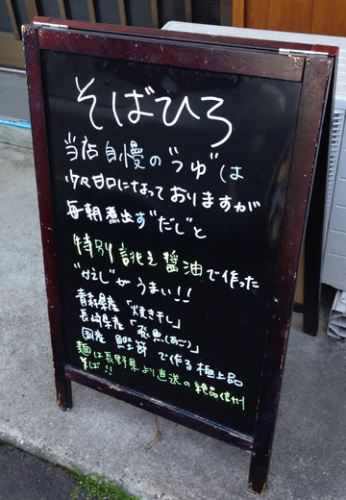 そばひろ
当店自慢の"つゆ"は
少々甘口になっておりますが
毎朝煮出す"だし"と
特別誂え醤油で作った
"かえし"がうまい!!
青森県産「焼き干し」
長崎県産「飛魚(あご)」
国産 鰹節 で作る極上品
麺は長野県より直送の絶品信州
そば!!